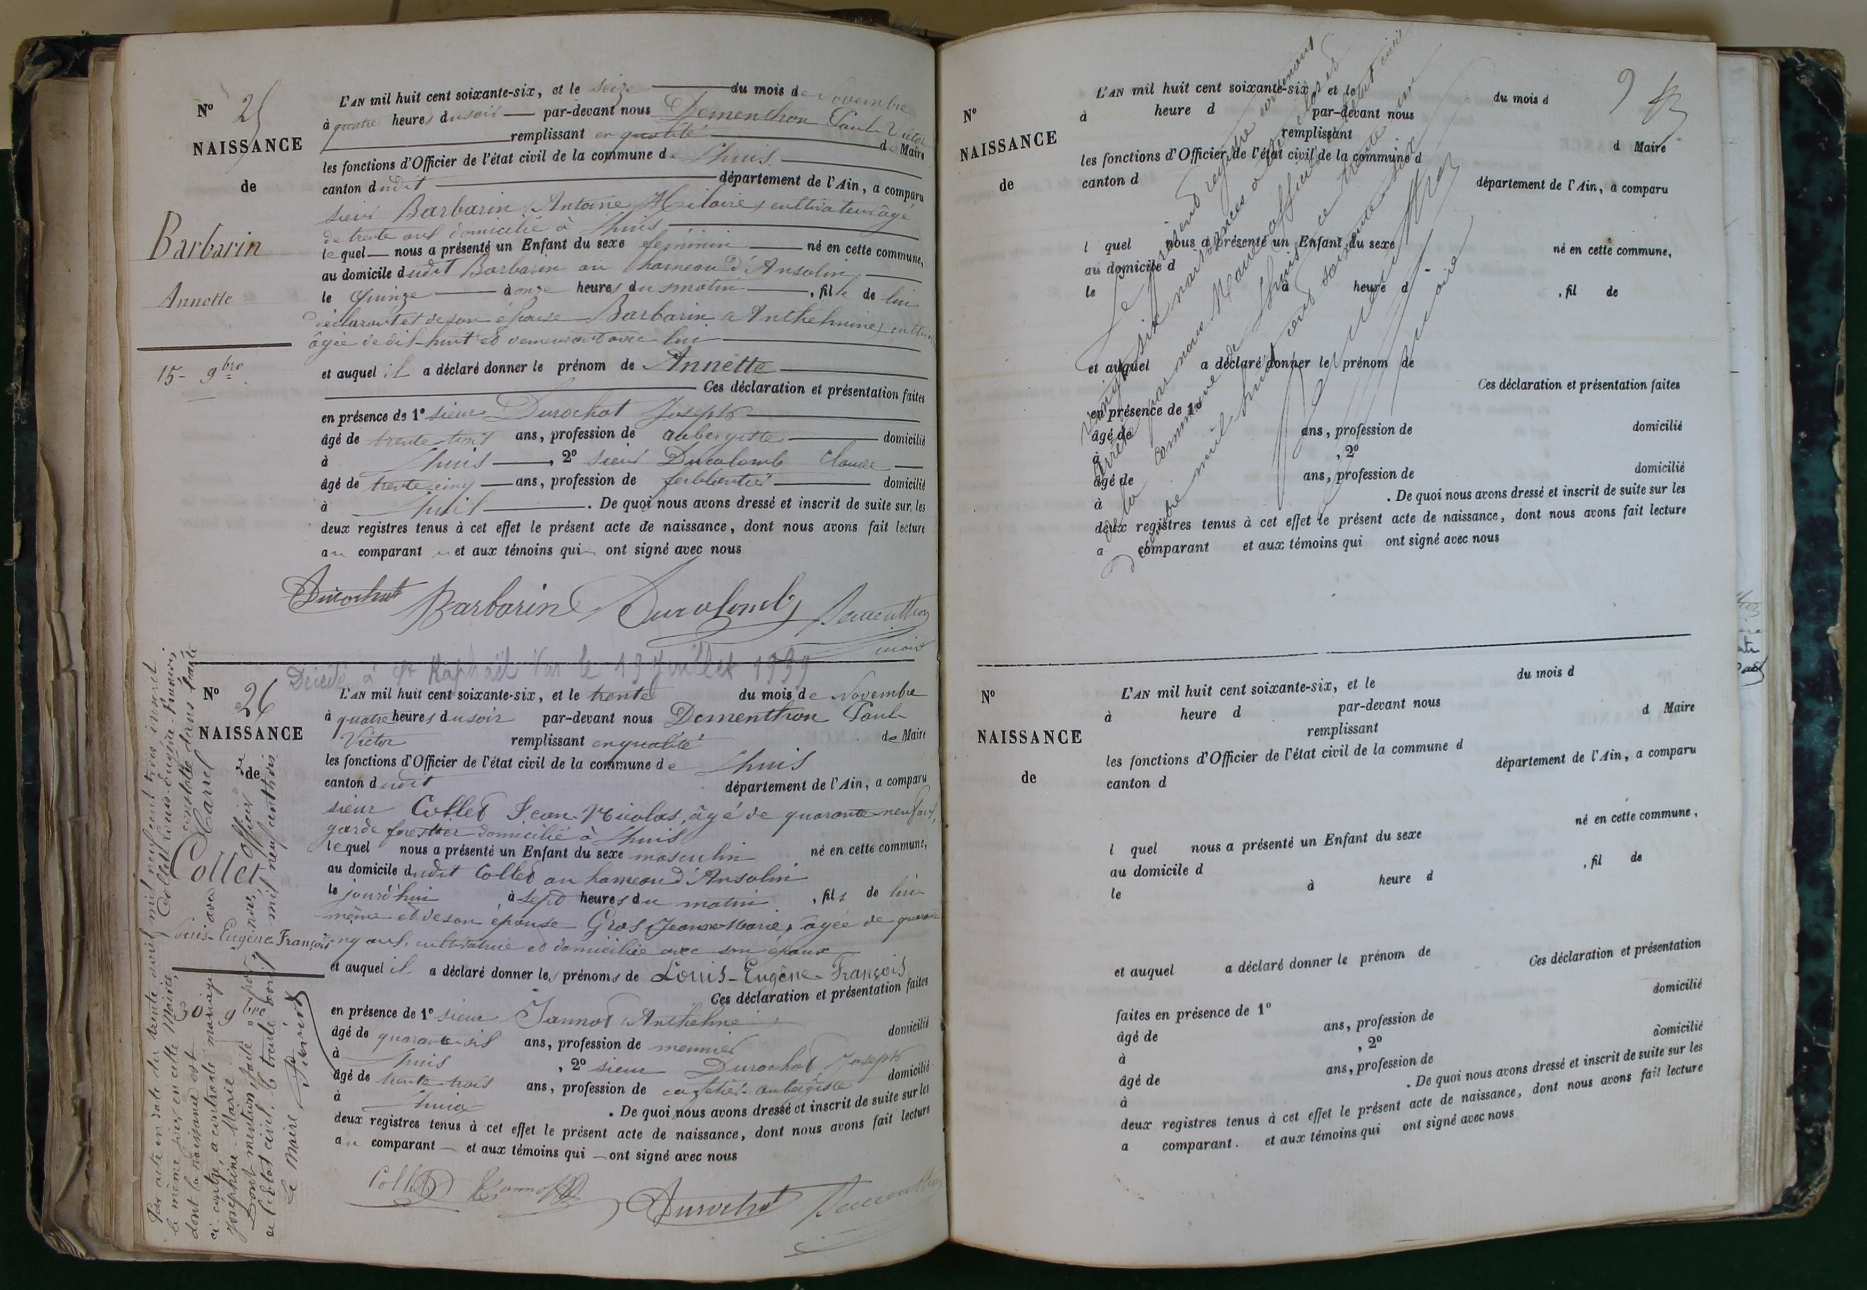 N° 25
NAISSANCE
de
Barbarin
Annette
15 - 9bre
L'AN mil huit cent soixante-six, et le seize du mois de Novembre
à quatre heures du soir par-devant nous Dementhon Paul-Victor
remplissant en qualité de Maire
les fonctions d'Officier de l'état civil de la commune de Lhuis
canton dudit département de l'Ain, a comparu
sieur Barbarin Antoine Hilaire, cultivateur âgé
de trente ans domicilié à Lhuis
lequel nous a présenté un Enfant du sexe féminin né en cette commune,
au domicile dudit Barbarin au hameau d'Ansolin
le Quinze à onze heures du matin, fille de lui
déclarant et de son épouse Barbarin Anthelmine,
âgée de dix-huit et demeurant avec lui
et auquel il a déclaré donner le prénom de Annette
Ces déclaration et présentation faites
en présence de 1° sieur Durochat Joseph
âgé de trente trois ans, profession de aubergiste domicilié
à Lhuis, 2° sieur Ducolomb Claude
âgé de trente cinq ans, profession de ferblantier domicilié
à Lhuis. De quoi nous avons dressé et inscrit de suite sur les
deux registres tenus à cet effet le présent acte de naissance, dont nous avons fait lecture
au comparant et aux témoins qui ont signé avec nous
Durochat Barbarin Ducolomb Dementhon
maire
Décédé à St Raphaël Var le 19 Juillet 1939
N° 26
NAISSANCE
de
Collet
Louis-Eugène-François
30 9bre
L'AN mil huit cent soixante-six, et le trente du mois de Novembre
à quatre heures du soir par-devant nous Dementhon Paul-
Victor remplissant en qualité de Maire
les fonctions d'Officier de l'état civil de la commune de Lhuis
canton dudit département de l'Ain, a comparu
sieur Collet Jean-Nicolas, âgé de quarante-neuf ans,
garde forestier domicilié à Lhuis
lequel nous a présenté un Enfant du sexe masculin né en cette commune,
au domicile dudit Collet au hameau d'Ansolin
le jourd'hui à sept heures du matin, fils de lui
même et de son épouse Gros Jeanne-Marie, âgée de quarante
cinq ans, cultivatrice et domiciliée avec son époux
et auquel il a déclaré donner les prénoms de Louis-Eugène-François
Ces déclaration et présentation faites
en présence de 1° sieur Jannot Anthelme
âgé de quarante-six ans, profession de meunier domicilié
à Lhuis, 2° sieur Durochat Joseph
âgé de trente-trois ans, profession de aubergiste domicilié
à Lhuis. De quoi nous avons dressé et inscrit de suite sur les
deux registres tenus à cet effet le présent acte de naissance, dont nous avons fait lecture
au comparant et aux témoins qui ont signé avec nous
Collet Jannot Durochat Dementhon
Par acte en date du trente avril mil neuf cent trois inscrit
le même jour en cette Mairie, Collet Louis-Eugène-François,
dont la naissance est constatée dans l'acte
ci-contre, a contracté mariage avec Carrel
Joséphine-Marie
Dont mention faite par nous, Officier de
de l'état civil, le trente avril mil neuf cent trois
Le Maire
N°
NAISSANCE
de
L'AN mil huit cent soixante-six, et le du mois d
à heure d par-devant nous
remplissant d Maire
les fonctions d'Officier de l'état civil de la commune d
canton d département de l'Ain, a comparu
l quel nous a présenté un Enfant du sexe né en cette commune,
au domicile d
le à heure d, fil de
et auquel a déclaré donner le prénom de
Ces déclaration et présentation faites
en présence de 1°
âgé de ans, profession de domicilié
à, 2°
âgé de ans, profession de domicilié
à. De quoi nous avons dressé et inscrit de suite sur les
deux registres tenus à cet effet le présent acte de naissance, dont nous avons fait lecture
a comparant et aux témoins qui ont signé avec nous
Le présent registre contenant
vingt-six naissances a été clos et
arrêté par nous Maire officier de l'état civil
de la commune de Lhuis, ce trente un
décembre mil huit cent soixante six
Le Maire
N°
NAISSANCE
de
L'AN mil huit cent soixante-six, et le du mois d
à heure d par-devant nous
remplissant d Maire
les fonctions d'Officier de l'état civil de la commune d
canton d département de l'Ain, a comparu
l quel nous a présenté un Enfant du sexe né en cette commune,
au domicile d
le à heure d, fil de
et auquel a déclaré donner le prénom de
Ces déclaration et présentation
faites en présence de 1° domicilié
âgé de ans, profession de
à, 2° domicilié
âgé de ans, profession de
à. De quoi nous avons dressé et inscrit de suite sur les
deux registres tenus à cet effet le présent acte de naissance, dont nous avons fait lecture
a comparant. et aux témoins qui ont signé avec nous